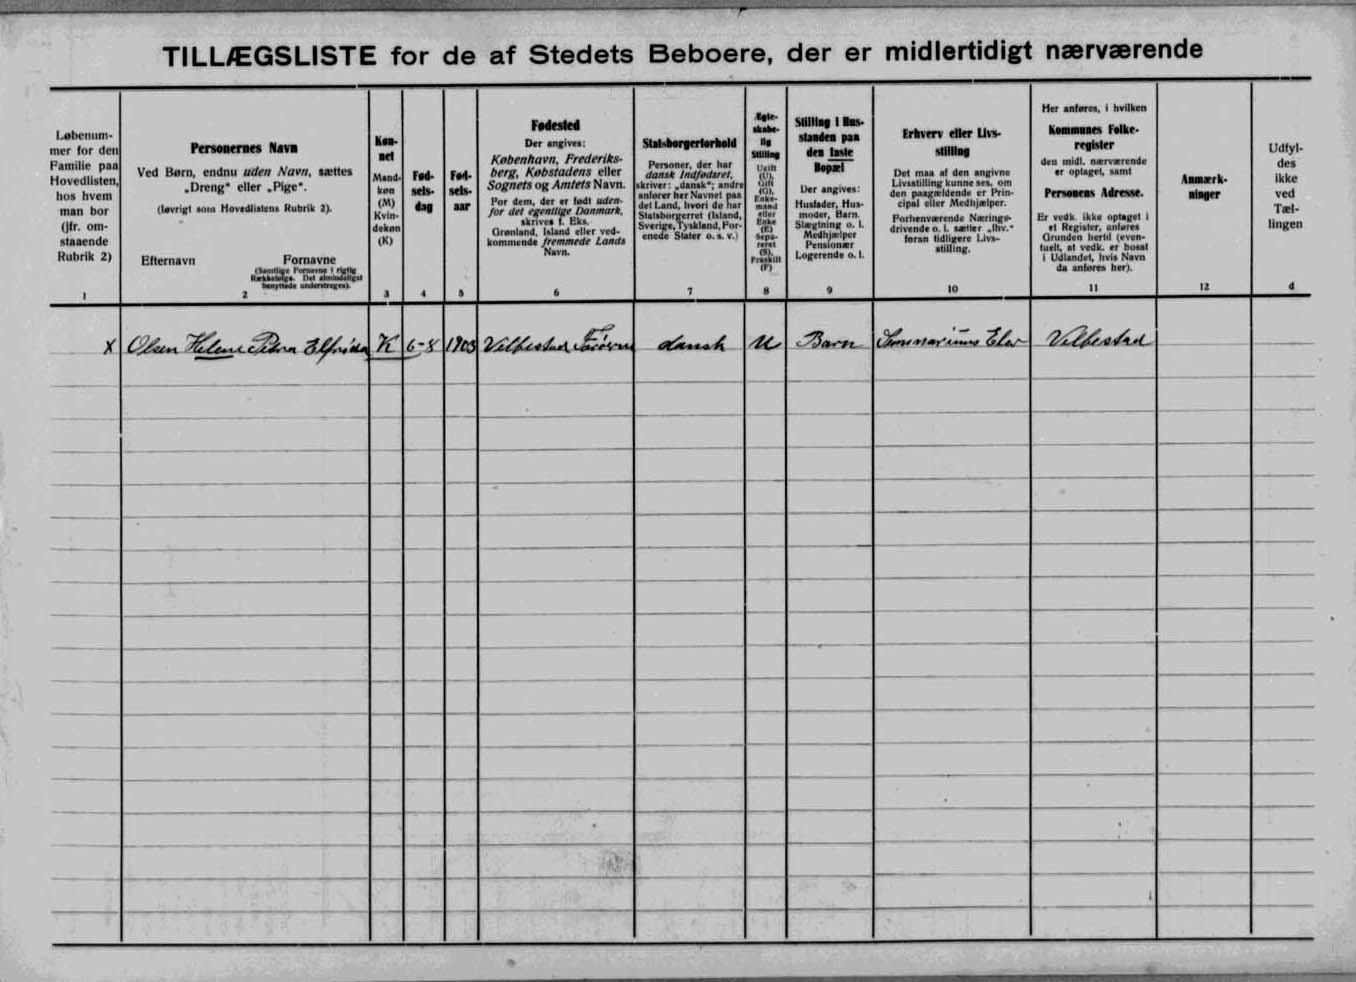 TILLÆGSLISTE for de af Stedets Beboere, der er midlertidigt nærværende
Løbenum-
mer for den
Familie paa
Hovedlisten,
hos hvem
man bor
(jfr. om-
staaende
Rubrik 2)
1
Personernes Navn
Ved Børn, endnu uden Navn, sættes
„Dreng“ eller „Pige“.
(Iøvrigt som Hovedlistens Rubrik 2).
Efternavn Fornavne
(Samtlige Fornavne i rigtig
Rækkefølge. Det almindeligst
benyttede understreges).
2
Køn-
net
Mand-
køn
(M)
Kvin-
dekøn
(K)
3
Fød-
sels-
dag
4
Fød-
sels-
aar
5
Fødested
Der angives:
København, Frederiks-
berg, Købstadens eller
Sognets og Amtets Navn.
For dem, der er født uden-
for det egentlige Danmark,
skrives f. Eks.
Grønland, Island eller ved-
kommende fremmede Lands
Navn.
6
Statsborgerforhold
Personer, der har
dansk Indfødsret,
skriver: „dansk“; andre
anfører her Navnet paa
det Land, hvori de har
Statsborgerret (Island,
Sverige, Tyskland, For-
enede Stater o. s. v.)
7
Ægte-
skabe-
lig
Stilling
Ugift
(U),
Gift
(G),
Enke-
mand
eller
Enke
(E)
Sepa-
reret
(S),
Fraskilt
(F)
8
Stilling i Hus-
standen paa
den faste
Bopæl
Der angives:
Husfader, Hus-
moder, Barn.
Slægtning o. l.
Medhjælper
Pensionær
Logerende o. l.
9
Erhverv eller Livs-
stilling
Det maa af den angivne
Livsstilling kunne ses, om
den paagældende er Prin-
cipal eller Medhjælper.
Forhenværende Nærings-
drivende o. l. sætter „fhv.“
foran tidligere Livs-
stilling.
10
Her anføres, i hvilken
Kommunes Folke-
register
den midl. nærværende
er optaget, samt
Personens Adresse.
Er vedk. ikke optaget i
et Register, anføres
Grunden hertil (even-
tuelt, at vedk. er bosat
i Udlandet, hvis Navn
da anføres her).
11
Anmærk-
ninger
12
Udfyl-
des
ikke
ved
Tæl-
lingen
d
X Olsen Helene Petra Elfrida K 6-8 1903 Velbestad Færøerne dansk U Barn Seminariums Elev Velbestad